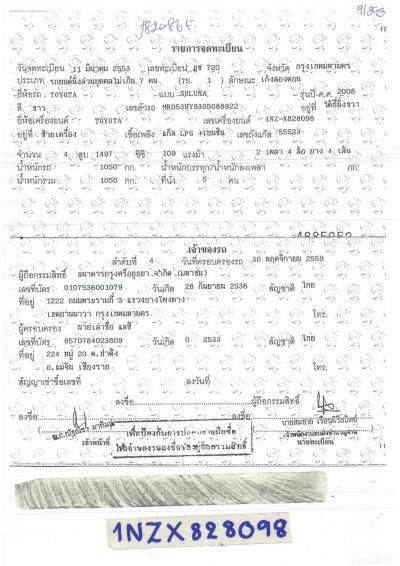 1820865
รายการจดทะเบียน
10
วันจดทะเบียน 11 มีนาคม 2553 เลขทะเบียน 720 จังหวัด กรุงเทพมหานคร
ประเภท รถยนต์นั่งส่วนบุคคลไม่เกิน 7 คน (รย. 1 ) ลักษณะ เก๋งสองตอน
ยี่ห้อรถ TOYOTA แบบ SOLUNA รุ่นปี ค.ศ. 2008
สี ขาว เลขตัวรถ MR053HY9305088922 อยู่ที่
ยี่ห้อเครื่องยนต์ TOYOTA เลขเครื่องยนต์ 1NZ-X828098
อยู่ที่ ข้างเครื่อง เชื้อเพลิง แก๊ส LPG +เบนซิน เลขถังแก๊ส 55523
จำนวน 4 สูบ 1497 ซีซี 109 แรงม้า 2 เพลา 4 ล้อ ยาง 4 เส้น
น้ำหนักรถ 1050 กก. น้ำหนักบรรทุก/น้ำหนักลงเพลา กก.
น้ำหนักรวม 1050 กก. ที่นั่ง 5 คน
เจ้าของรถ
ลำดับที่ 4 วันที่ครอบครองรถ 30 พฤศจิกายน 2559
ผู้ถือกรรมสิทธิ์ ธนาคารกรุงศรีอยุธยา จำกัด (มหาชน)
เลขที่บัตร 0107536001079 วันเกิด 28 กันยายน 2536 สัญชาติ ไทย
ที่อยู่ 1222 ถนนพระรามที่ 3 แขวงบางโพงพาง
เขตยานนาวา กรุงเทพมหานคร โทร.
ผู้ครอบครอง
เลขที่บัตร 8570784023809 วันเกิด 0 2533 สัญชาติ ไทย
ที่อยู่ 224 หมู่ 20 ต.ป่าตึง
อ.แม่จัน เชียงราย โทร.
สัญญาเช่าซื้อเลขที่ ลงวันที่
ลงชื่อ ผู้ถือกรรมสิทธิ์
ลงชื่อ ลงชื่อ
เจ้าหน้าที่ นายทะเบียน
11
1NZX828098